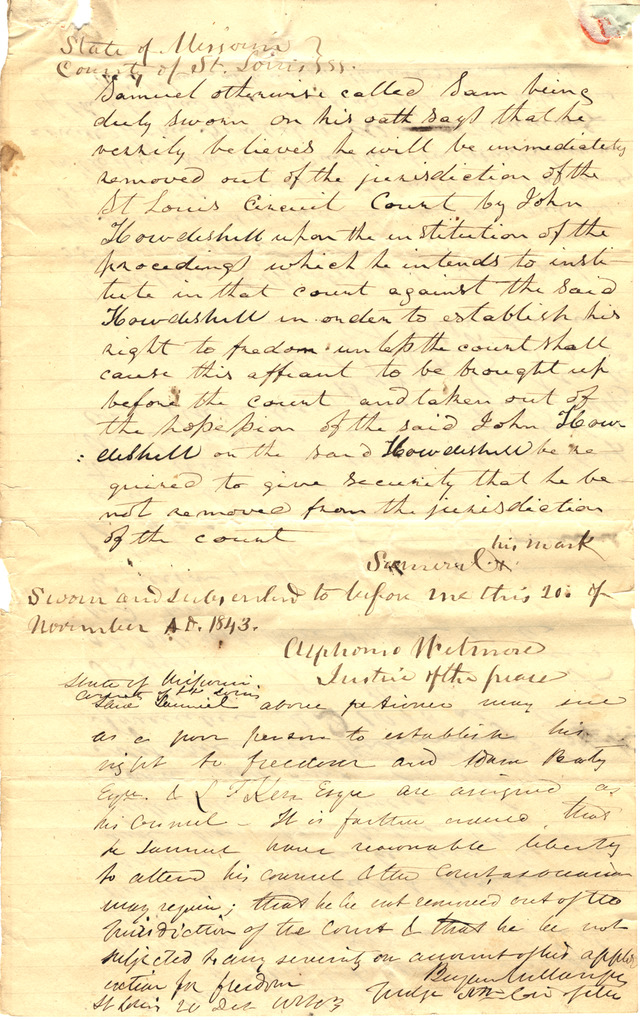 State of Missouri }
County of St. Louis } ss.
Samuel otherwise called Sam being
duly sworn on his oath says that he
verrily believes he will be immediately
removed out of the jurisdiction of the
St Louis Circuit Court by John
Howdeshell upon the institution of the
procedings which he intends to insti-
tute in that court against the said
Howdeshell in order to establish his
right to fredom unless the court shall
cause this affiant to be brought up
before the court and taken out of
the possession of the said John How
deshell or the said Howdeshell be re
quired to give security that he be
not removed from the jurisdiction
of the court
his mark
Samuel X
Sworn and subscribed to before me this 20th of
November A.D. 1843.
Alphonso Wetmore
Justice of the peace
State of Missouri
County of St Louis
Samuel above petioner may sue
as a poor person to establish his
right to freedom and
Esqr. & Esqr are assigned as
his Counsel - It is further ordered that
he Samuel have reasonable liberty
to attend his counsel & the Court as occasion
may require; that he be not removed out of the
Jurisdiction of the Court & that he be not
subjected to any severity on account of his appli
cation for freedom
St Louis 20
Judge